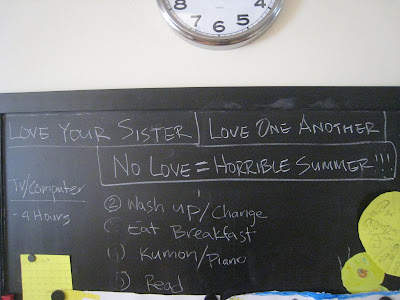 8 7 6 5 4
LOVE YOUR SISTER
LOVE ONE ANOTHER
NO LOVE = HORRIBLE SUMMER!!!
TV/Computer
- 4 Hours
② Wash up/Change
Eat Breakfast
Kumon/Piano
Read